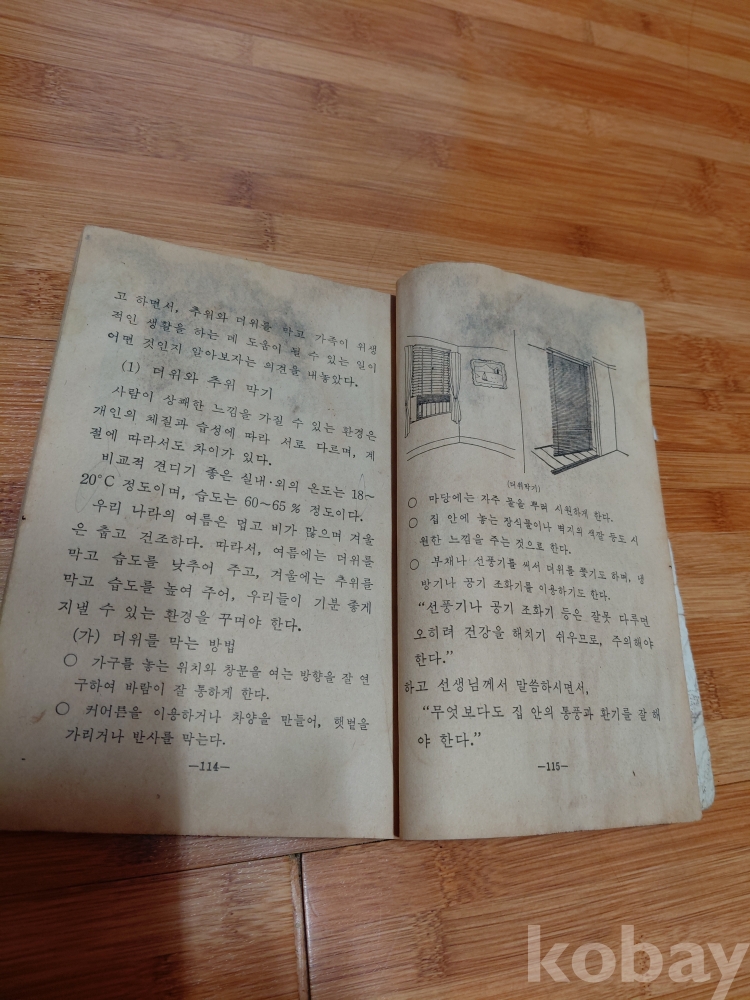 고 하면서, 추위와 더위를 막고 가족이 위생
적인 생활을 하는 데 도움이 될 수 있는 일이
어떤 것인지 알아보자는 의견을 내놓았다.
(1) 더위와 추위 막기
사람이 상쾌한 느낌을 가질 수 있는 환경은
개인의 체질과 습성에 따라 서로 다르며, 계
절에 따라서도 차이가 있다.
비교적 견디기 좋은 실내·외의 온도는 18~
20°C 정도이며, 습도는 60~65% 정도이다.
우리 나라의 여름은 덥고 비가 많으며 겨울
은 춥고 건조하다. 따라서, 여름에는 더위를
막고 습도를 낮추어 주고, 겨울에는 추위를
막고 습도를 높여 주어, 우리들이 기분 좋게
지낼 수 있는 환경을 꾸며야 한다.
(가) 더위를 막는 방법
○ 가구를 놓는 위치와 창문을 여는 방향을 잘 연
구하여 바람이 잘 통하게 한다.
○ 커어튼을 이용하거나 차양을 만들어, 햇볕을
가리거나 반사를 막는다.
—114—
(더위막기)
○ 마당에는 자주 물을 뿌려 시원하게 한다.
○ 집 안에 놓는 장식물이나 벽지의 색깔 등도 시
원한 느낌을 주는 것으로 한다.
○ 부채나 선풍기를 써서 더위를 쫓기도 하며, 냉
방기나 공기 조화기를 이용하기도 한다.
“선풍기나 공기 조화기 등은 잘못 다루면
오히려 건강을 해치기 쉬우므로, 주의해야
한다.”
하고 선생님께서 말씀하시면서,
“무엇보다도 집 안의 통풍과 환기를 잘 해
야 한다.”
—115—
kobay